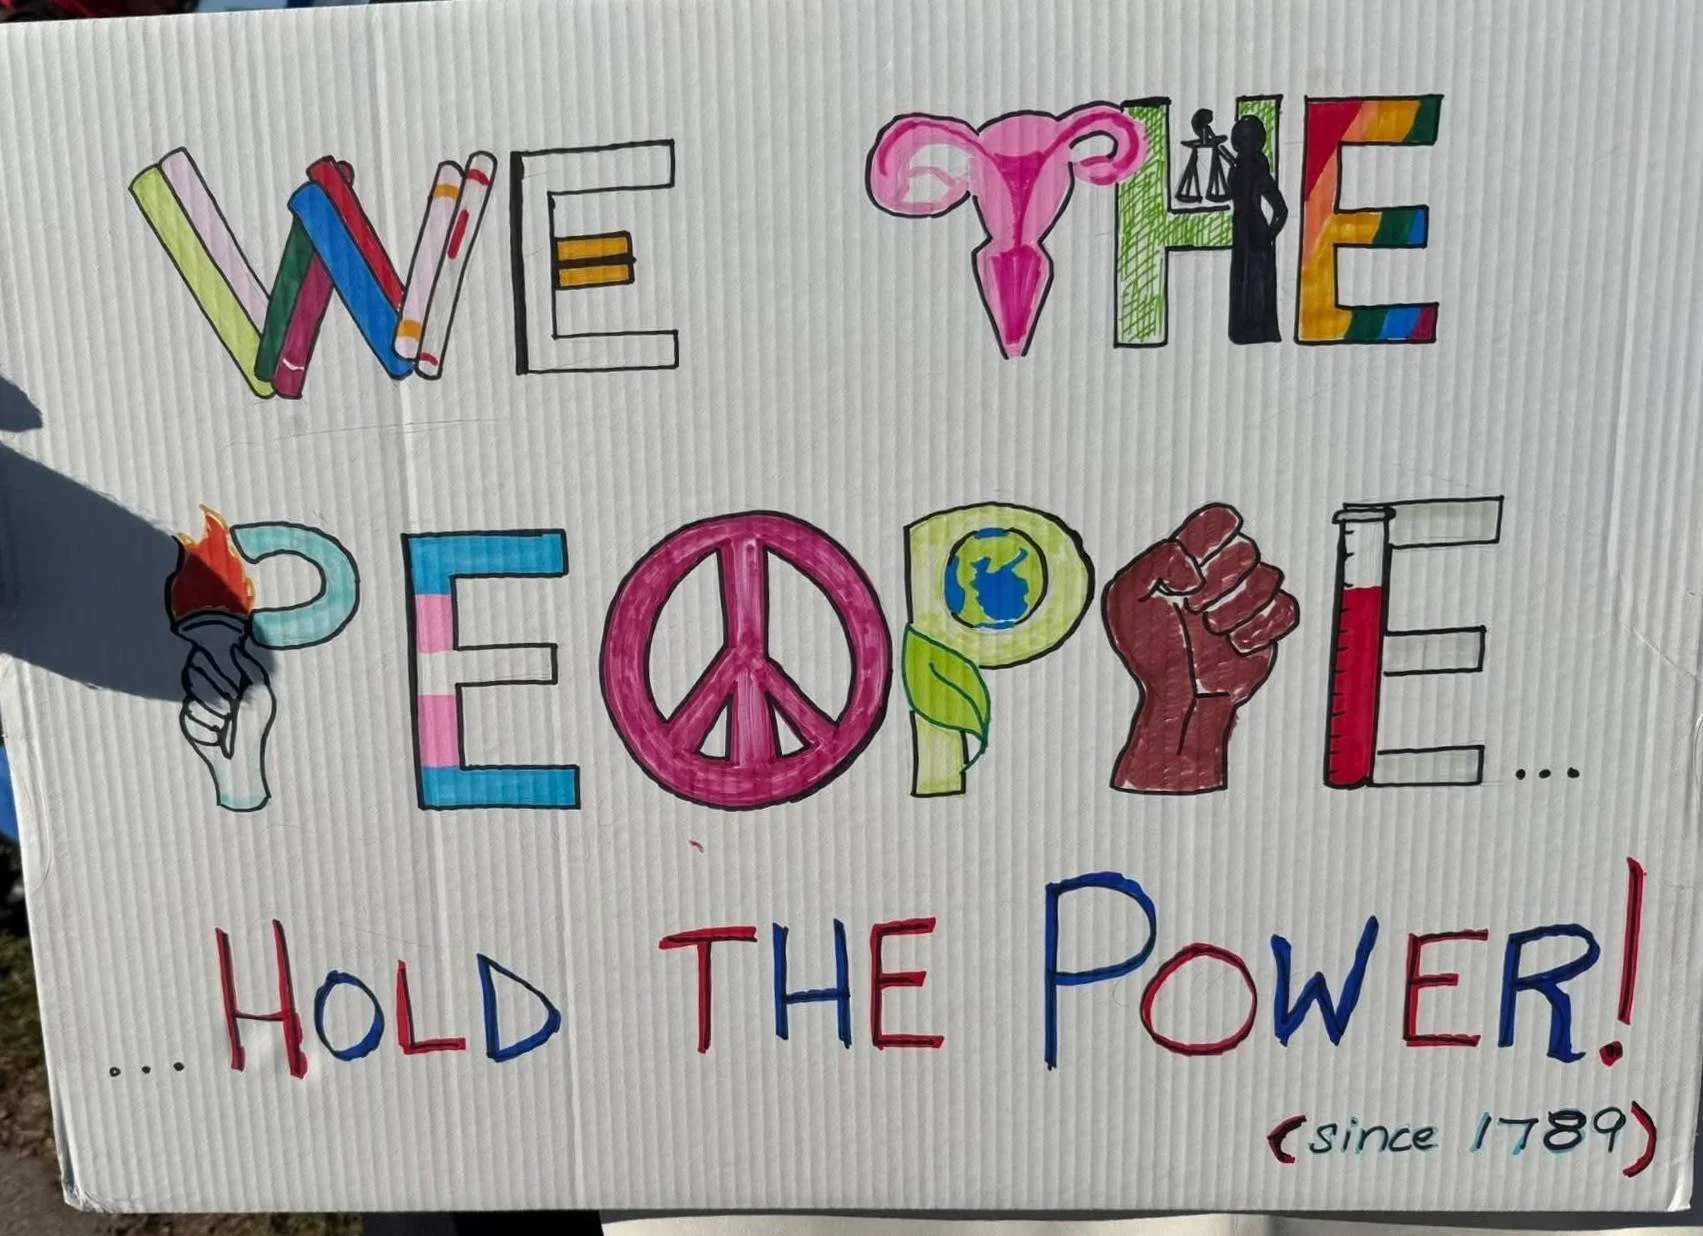 WE THE
PEOPLE...
...HOLD THE POWER!
(since 1789)